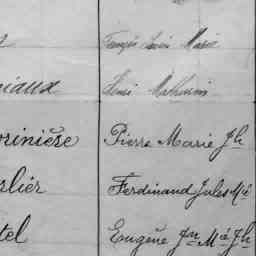 François Louis Marie
iaux Henri Mathurin
orinière Pierre Marie Jh
rlier Ferdinand Jules Mie
tel Eugène Jn Mie Jh